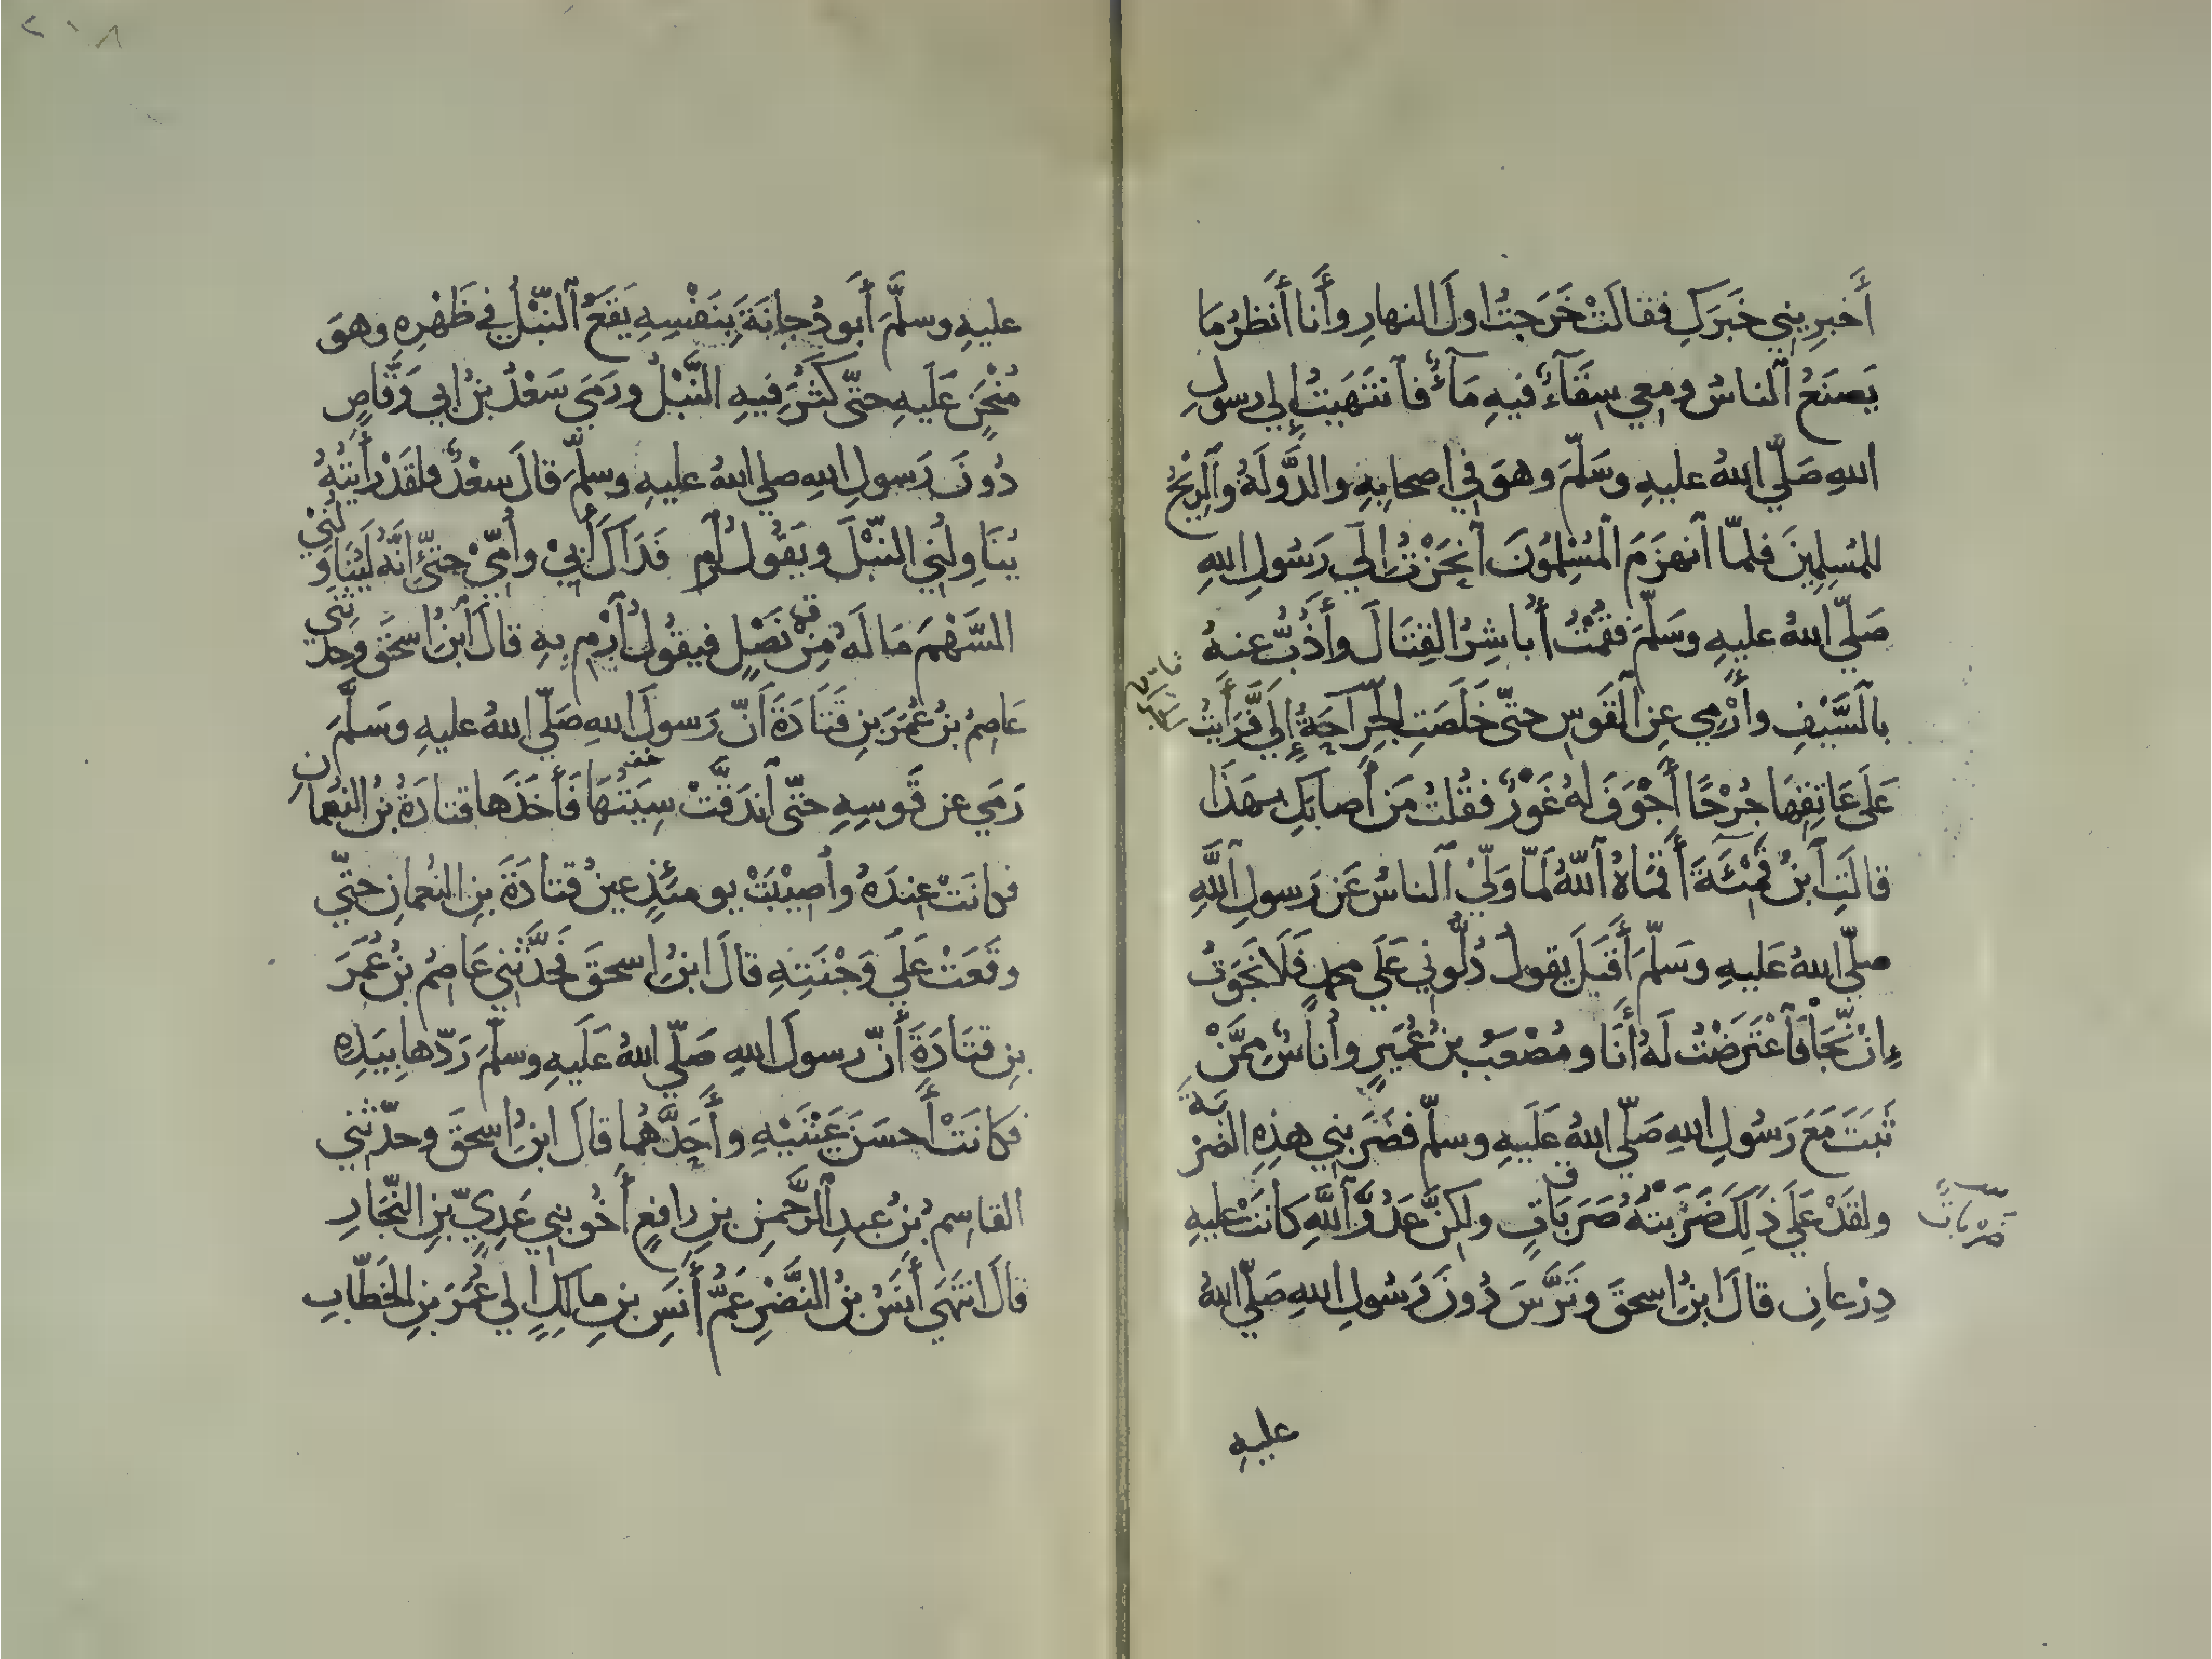 أَخبرِيني خَبَرَكِ فقالَتْ خَرَجتُ اولَ النهارِ وأَنا أَنظرُ مَا
يَصنَعُ ٱلناسُ ومعي سِقَآءٌ فيهِ مَآءٌ فٱنتَهَيتُ إلي رسولِ
اللهِ صَلّي اللهُ عليهِ وسَلّمَ وهوَ في اصحابِهِ والدَّولَةُ وٱلرِّيحُ
للمُسلِمِينَ فلمّا ٱنهزَمَ ٱلمُسْلِمُونَ ٱنحَزْتُ إلَي رَسُولِ اللهِ
صَلّي اللهُ عليهِ وسَلّمَ فقُمْتُ أُباشِرُ القِتَالَ وأَذُبُّ عنهُ
بٱلسَّيْفِ وأَرْمِي عنِ ٱلقَوسِ حتّي خَلَصَتِ الجِرَاحَةُ إلَيَّ فَرَأَيتُ
عَلَي عَاتِقِهَا جُرْحًا أَجْوَفَ لهُ غَوْرٌ فقُلتُ مَن أَصابَكِ بهَذَا
قالَتِ ٱبنُ قَمِئَةَ أَقمَاهُ ٱللّهُ لَمّا وَلّيٰ ٱلناسُ عَن رَسولِ ٱللَّهِ
صلّي اللهُ عَليهِ وسَلّمَ أَقبَلَ يقولُ دُلُّوني عَلَي محمدٍ فَلَا نَجَوتُ
إِنْ نَجَا فَٱعْتَرَضْتُ لَهُ أَنَا ومُصْعَبُ بنُ عُمَيرٍ وأُناسٌ مِمَّنْ
ثَبَتَ مَعَ رَسُولِ اللهِ صَلّي اللهُ عَلَيهِ وسلّم فضَرَبني هذِهِ الضربَةَ
ولقَدْ عَلَي ذَلِكَ ضَرَبتُهُ ضَرَبَاتٍ ولكِنَّ عَدُوَّ ٱللَّهِ كَانَتْ عليهِ
ضَرْبَاتٍ
دِرْعانِ قالَ ابنُ اسحقَ وتَرَّسَ دُونَ رَسُولِ اللهِ صَلّي اللهُ
عليهِ
٢٠٨
عليهِ وسلَّمَ أَبو دُجانَةَ بِنَفْسِهِ يَقَعُ ٱلنّبْلُ في ظَهْرِهِ وهوَ
مُنْحَنٍ عَلَيهِ حتّي كَثُرَ فيهِ النَّبْلُ ورَمَي سَعْدُ بنُ ابي وَقَّاصٍ
دُونَ رَسولِ اللهِ صلي اللهُ عليهِ وسلّمَ قالَ سعْدٌ ولقَدْ رأَيتُهُ
يُنَاوِلُنِي النّبْلَ ويَقُولُ ٱرْمِ فَدَاكَ أَبِيْ وأُمّيْ حتيّ إنَّهُ لَيُنَاوِلُنِيْ
السَّهْمَ مَا لَهُ مِنْ نَصْلٍ فيقُولُ ٱرْمِ بِهِ قالَ ٱبنُ اسحَقَ وحدثَنِي
عَاصِمُ بنُ عُمَرَ بنِ قَتَادَةَ أَنّ رَسولَ اللهِ صَلّي اللهُ عليهِ وسَلَّمَ
رَمَي عن قَوسِهِ حتّي ٱندَقَّتْ سِيَتُهَا فَأَخَذَها قتادَةُ بنُ النعمانِ
فكانَتْ عِندَهُ وأُصِيْبَتْ يومئذٍ عينُ قتادَةَ بنِ النُعمانِ حتّي
وقَعَتْ عَلَي وَجْنَتِهِ قالَ ابنُ اسحقَ فَحدَّثَني عَاصِمُ بنُ عُمَرَ
بنِ قتَادَةَ أَنّ رسولَ اللهِ صَلّي اللهُ عَلَيهِ وسلّمَ رَدّها بِيَدِهِ
فكانَتْ أَحسَنَ عَيْنَيْهِ وأَحَدَّهُما قالَ ابنُ اسحقَ وحدّثني
القاسِمُ بنُ عبدِ ٱلرَّحمنِ بنِ رافعٍ أَخُو بني عَدِيّ بنِ النّجَّارِ
قالَ انتَهَي أَنَسُ بنُ النَّضْرِ عَمُّ أَنَسِ بنِ مالِكٍ إلي عُمَرَ بنِ الخَطّابِ